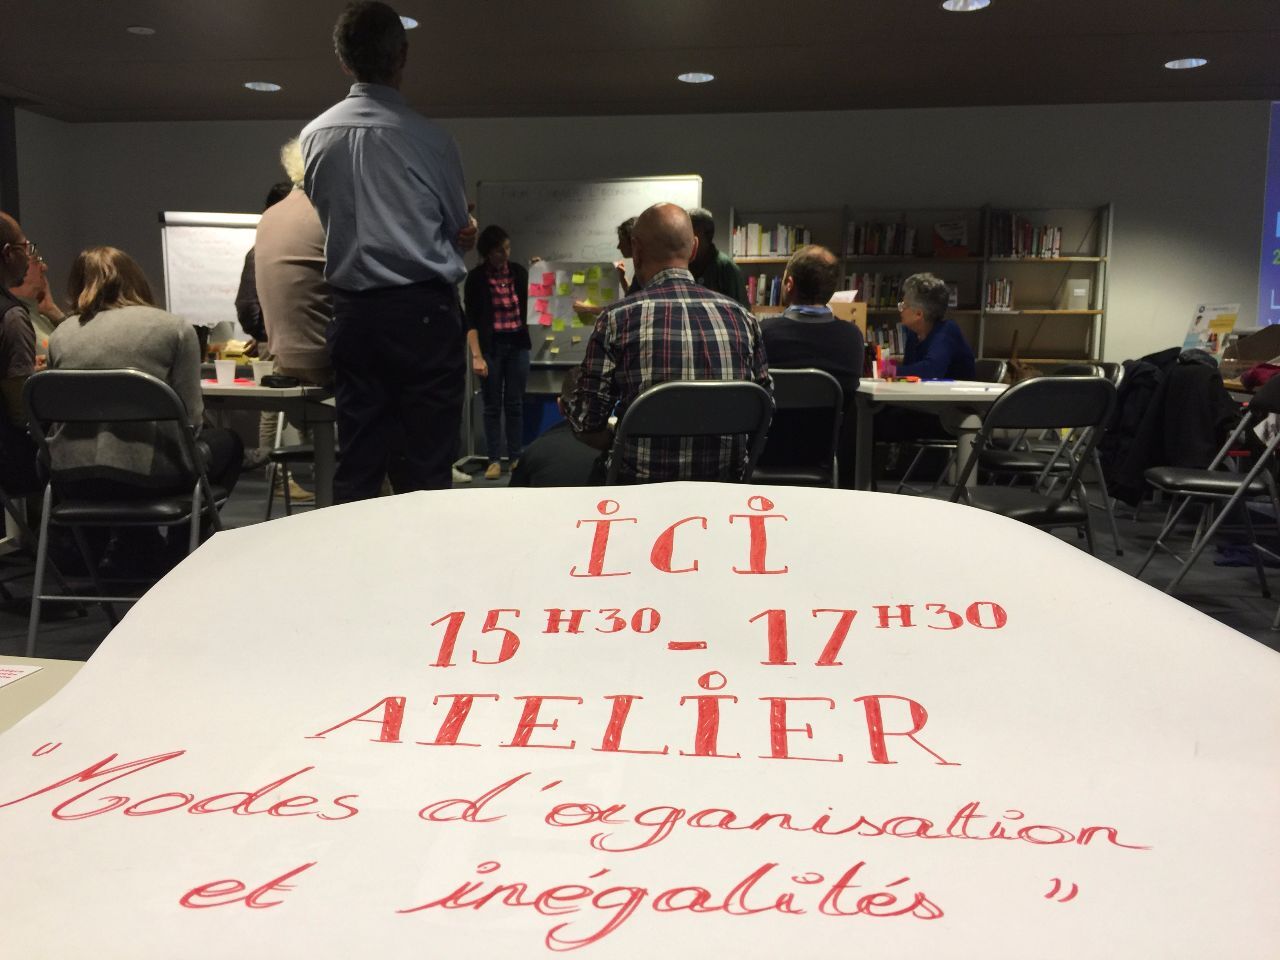 ICI
15H30 - 17H30
ATELIER
"Modes d'organisation
et inégalités"